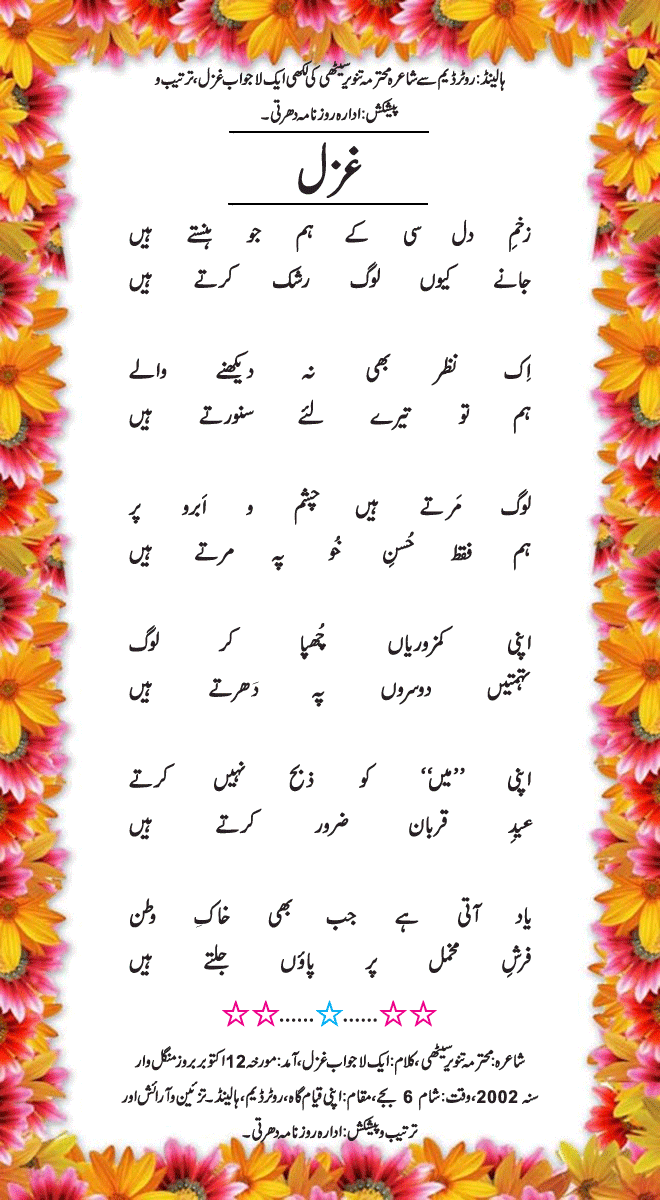 ہالینڈ: روٹرڈیم سے شاعرہ محترمہ تنویر سیٹھی کی لکھی ایک لاجواب غزل، ترتیب و
پیشکش: ادارہ روزنامہ دھرتی۔
غزل
زخمِ دل سی کے ہم جو ہنستے ہیں
جانے کیوں لوگ رشک کرتے ہیں
اِک نظر بھی نہ دیکھنے والے
ہم تو تیرے لئے سنورتے ہیں
لوگ مَرتے ہیں چشم و اَبرو پر
ہم فقط حُسنِ خُو پہ مرتے ہیں
اپنی کمزوریاں چُھپا کر لوگ
تہمتیں دوسروں پہ دَھرتے ہیں
اپنی ”میں“ کو ذبح نہیں کرتے
عیدِ قربان ضرور کرتے ہیں
یاد آتی ہے جب بھی خاکِ وطن
فرشِ مخمل پر پاؤں جلتے ہیں
☆☆......☆......☆☆
شاعرہ: محترمہ تنویر سیٹھی، کلام: ایک لاجواب غزل، آمد: مورخہ 12 اکتوبر بروز منگل وار
سنہ 2002، وقت: شام 6 بجے، مقام: اپنی قیام گاہ، روٹرڈیم، ہالینڈ۔ تزئین و آرائش اور
ترتیب و پیشکش: ادارہ روزنامہ دھرتی۔